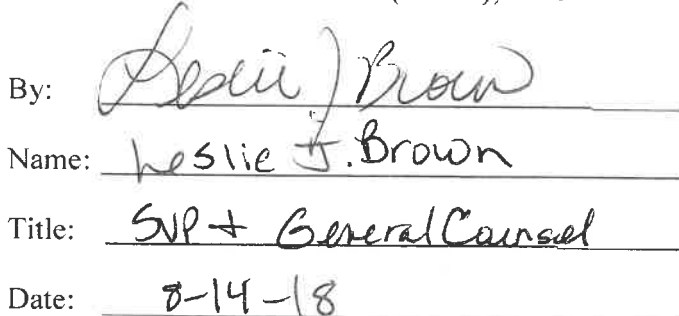 By: Leslie J Brown
Name: Leslie J. Brown
Title: SVP + General Counsel
Date: 8-14-18